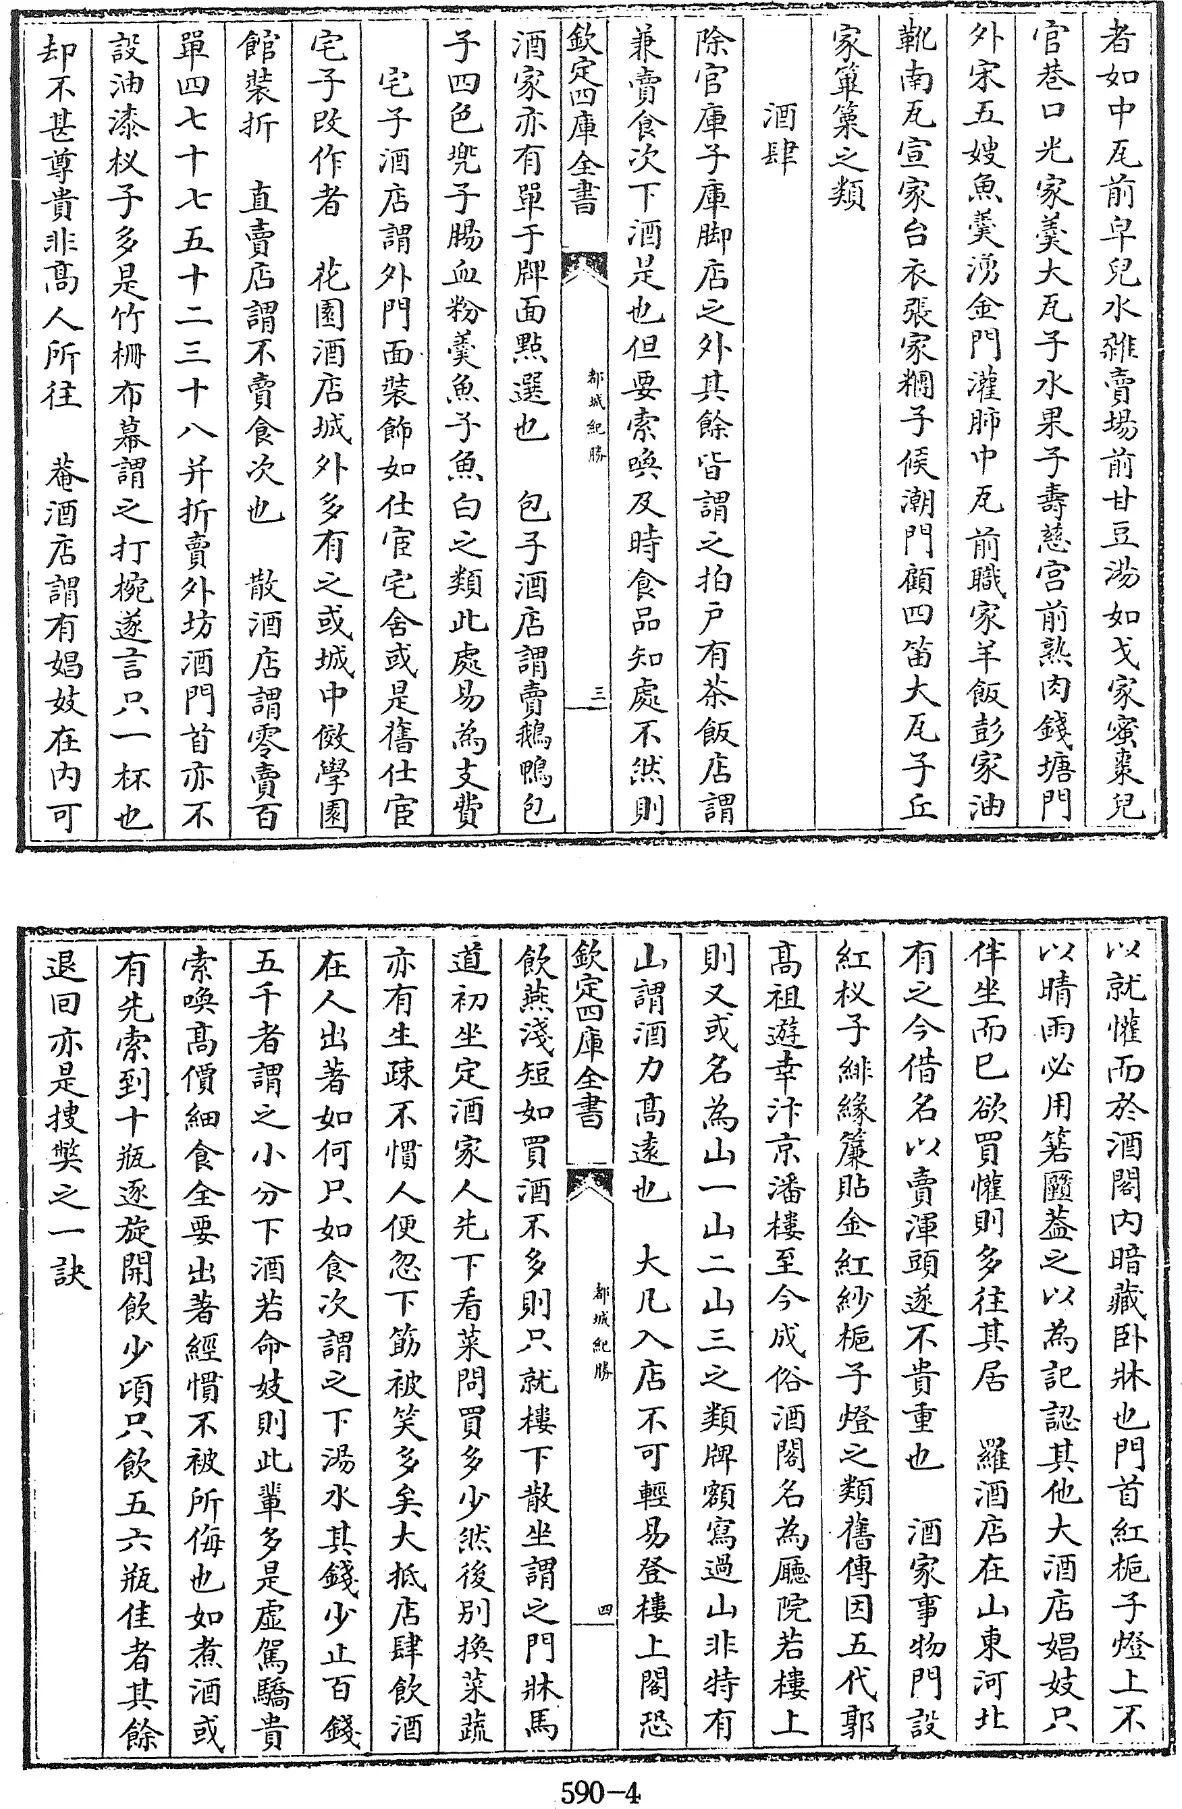 者如中瓦前皁兒水雜賣塲前甘豆湯如戈家蜜棗兒
官巷口光家羹大瓦子水果子壽慈宫前熟肉錢塘門
外宋五嫂魚羹湧金門灌肺中瓦前職家羊飯彭家油
靴南瓦宣家台衣張家糰子候潮門顧四笛大瓦子丘
家篳篥之類
酒肆
除官庫子庫脚店之外其餘皆謂之拍户有茶飯店謂
兼賣食次下酒是也但要索喚及時食品知處不然則
欽定四庫全書
都城紀勝
三
酒家亦有單于牌面點選也 包子酒店謂賣鵝鴨包
子四色兠子腸血粉羹魚子魚白之類此處易為支費
宅子酒店謂外門面裝飾如仕宦宅舍或是舊仕宦
宅子改作者 花園酒店城外多有之或城中倣學園
館裝折 直賣店謂不賣食次也 散酒店謂零賣百
單四七十七五十二三十八并折賣外坊酒門首亦不
設油漆杈子多是竹柵布幕謂之打椀遂言只一杯也
却不甚尊貴非高人所往 菴酒店謂有娼妓在内可
以就懽而於酒閣内暗藏卧牀也門首紅梔子燈上不
以晴雨必用箬𧆊葢之以為記認其他大酒店娼妓只
伴坐而已欲買懽則多往其居 羅酒店在山東河北
有之今借名以賣渾頭遂不貴重也 酒家事物門設
紅杈子緋緣簾貼金紅紗梔子燈之類舊傳因五代郭
髙祖遊幸汴京潘樓至今成俗酒閣名為廳院若樓上
則又或名為山一山二山三之類牌額寫過山非特有
山謂酒力高遠也 大凡入店不可輕易登樓上閣恐
欽定四庫全書
都城紀勝
四
飲燕淺短如買酒不多則只就樓下散坐謂之門牀馬
道初坐定酒家人先下看菜問買多少然後别換菜蔬
亦有生疎不慣人便忽下筯被笑多矣大抵店肆飲酒
在人出著如何只如食次謂之下湯水其錢少止百錢
五千者謂之小分下酒若命妓則此輩多是虛駕驕貴
索喚髙價細食全要出著經慣不被所侮也如煮酒或
有先索到十瓶逐旋開飲少頃只飲五六瓶佳者其餘
退回亦是搜弊之一訣
590-4